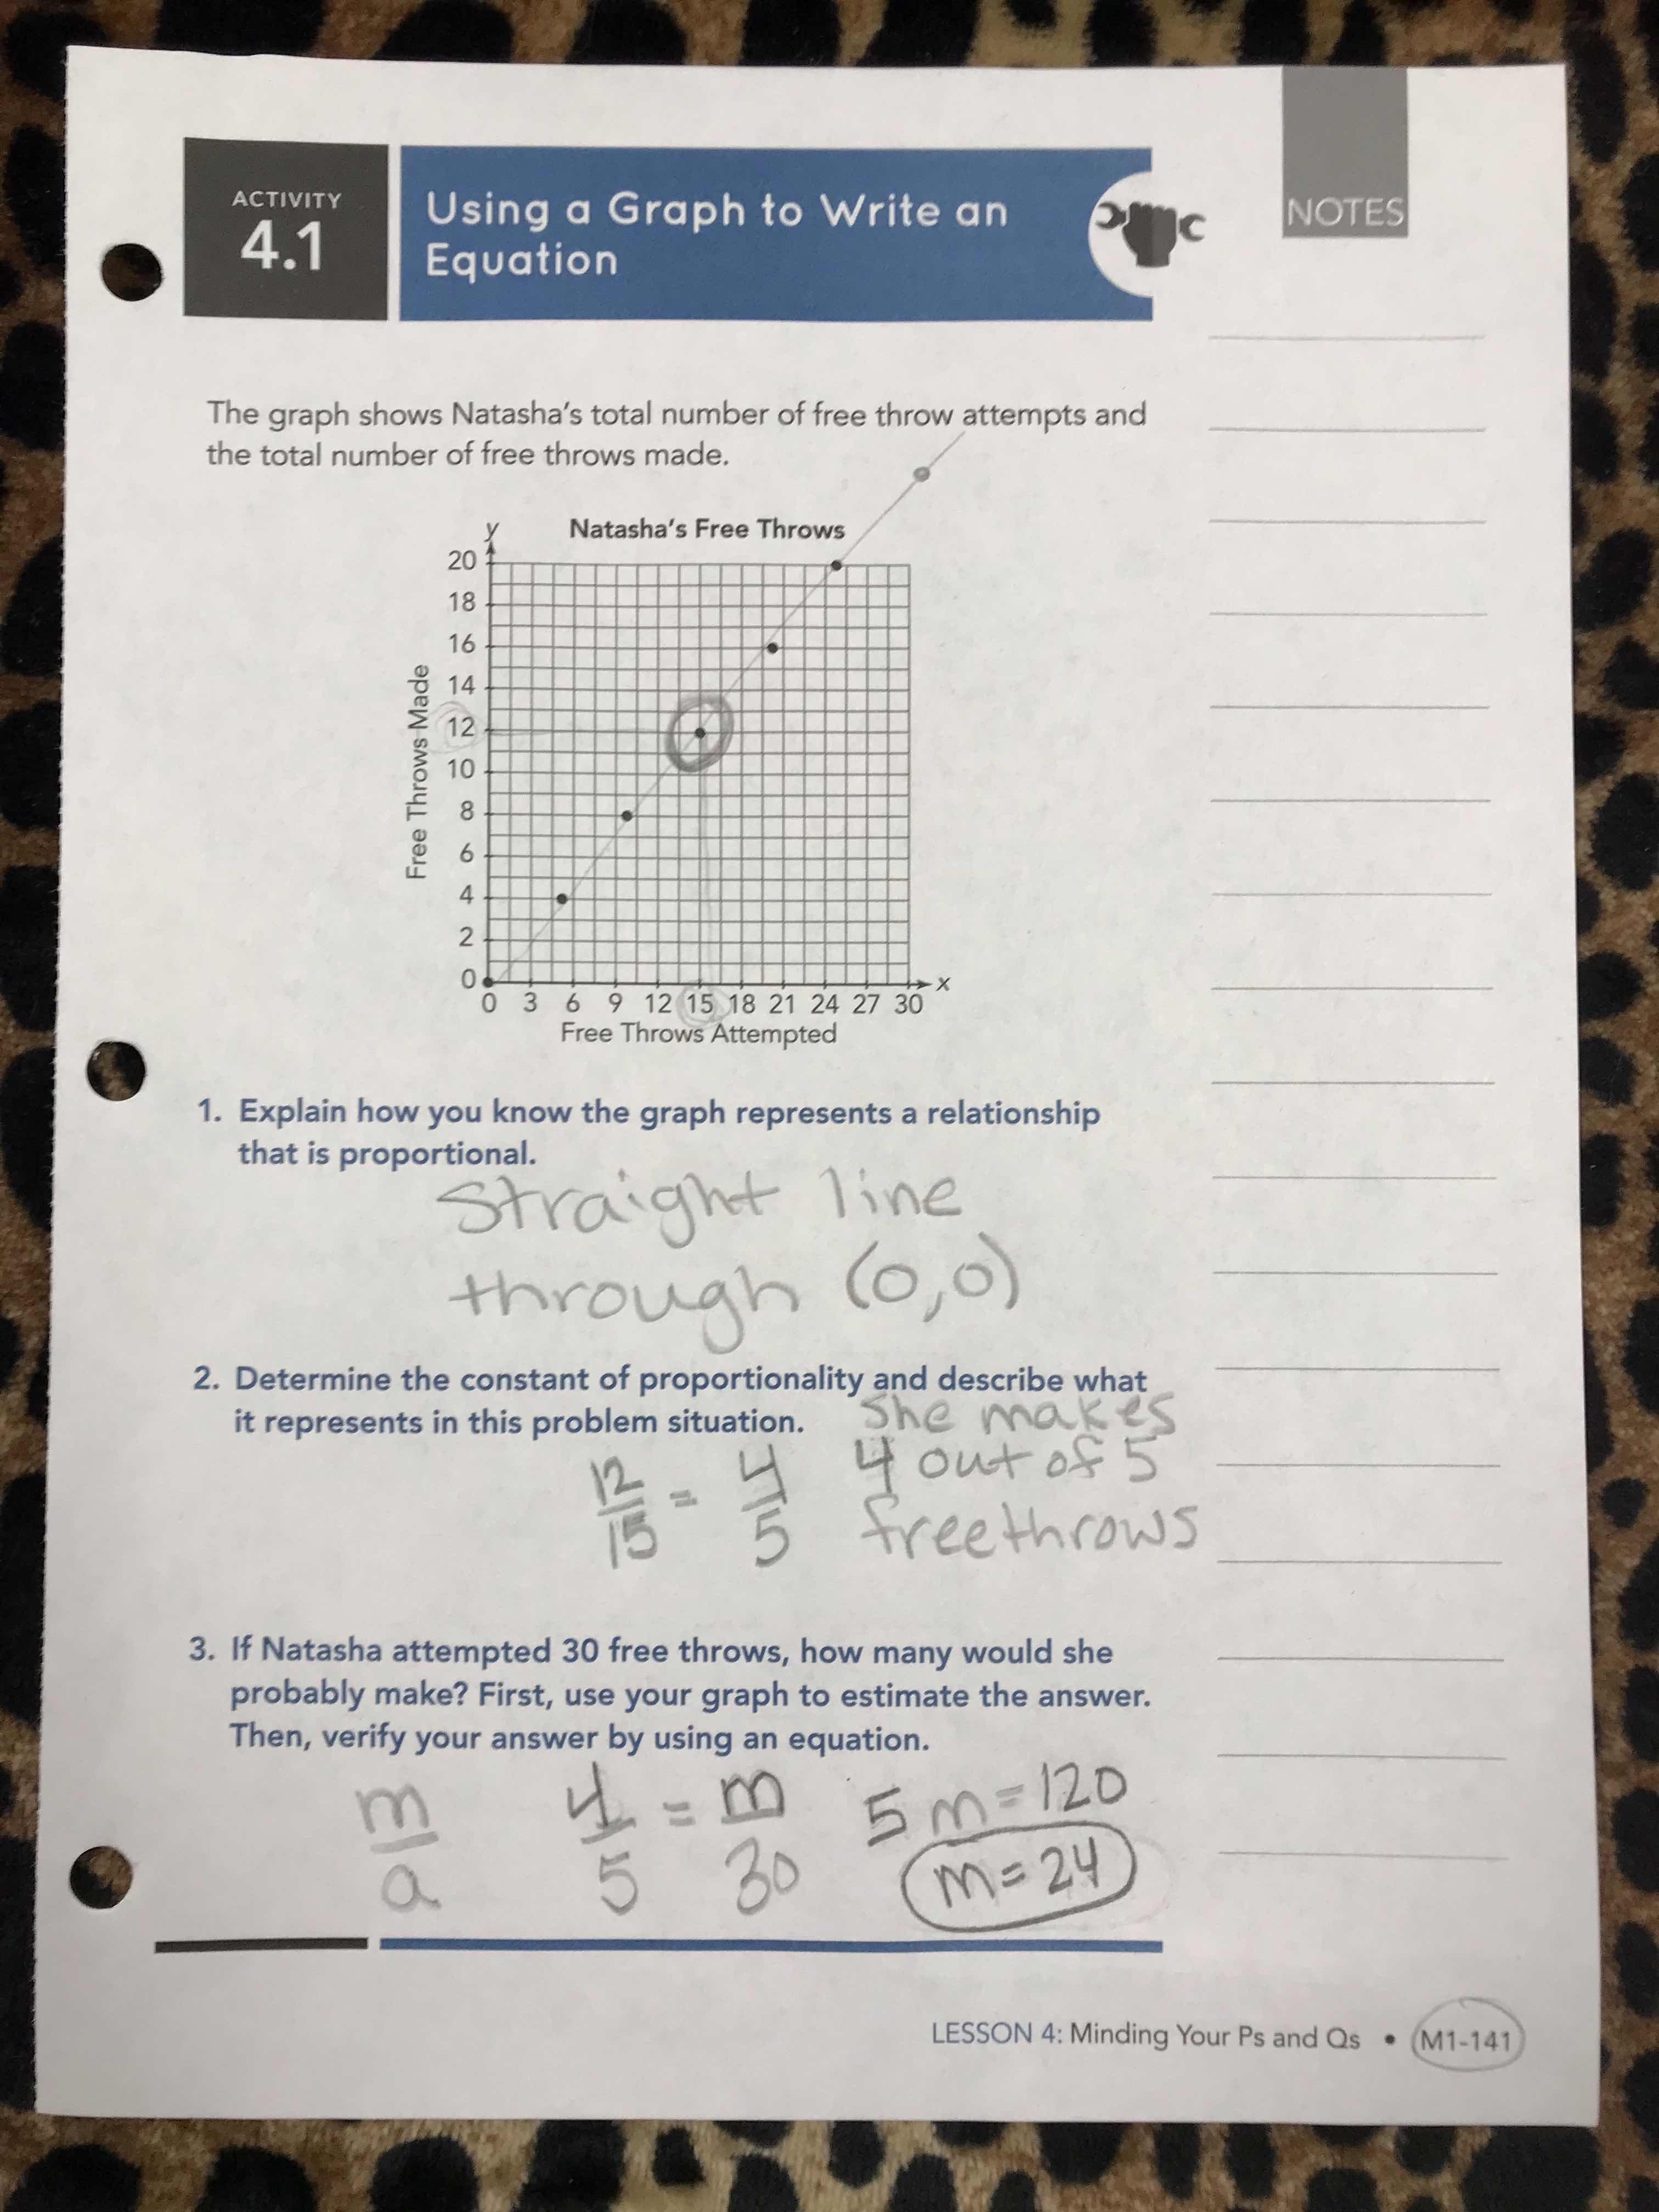 ACTIVITY
4.1
Using a Graph to Write an
Equation
NOTES
The graph shows Natasha's total number of free throw attempts and
the total number of free throws made.
Natasha's Free Throws
y
20
18
16
14
12
10
8
6
4
2
0
Free Throws Made
x
0 3 6 9 12 15 18 21 24 27 30
Free Throws Attempted
1. Explain how you know the graph represents a relationship
that is proportional.
Straight line
through (0,0)
2. Determine the constant of proportionality and describe what
it represents in this problem situation.
She makes
4 out of 5
freethrows
12/15 = 4/5
3. If Natasha attempted 30 free throws, how many would she
probably make? First, use your graph to estimate the answer.
Then, verify your answer by using an equation.
m/a 4/5 = m/30 5m=120
m=24
LESSON 4: Minding Your Ps and Qs • M1-141